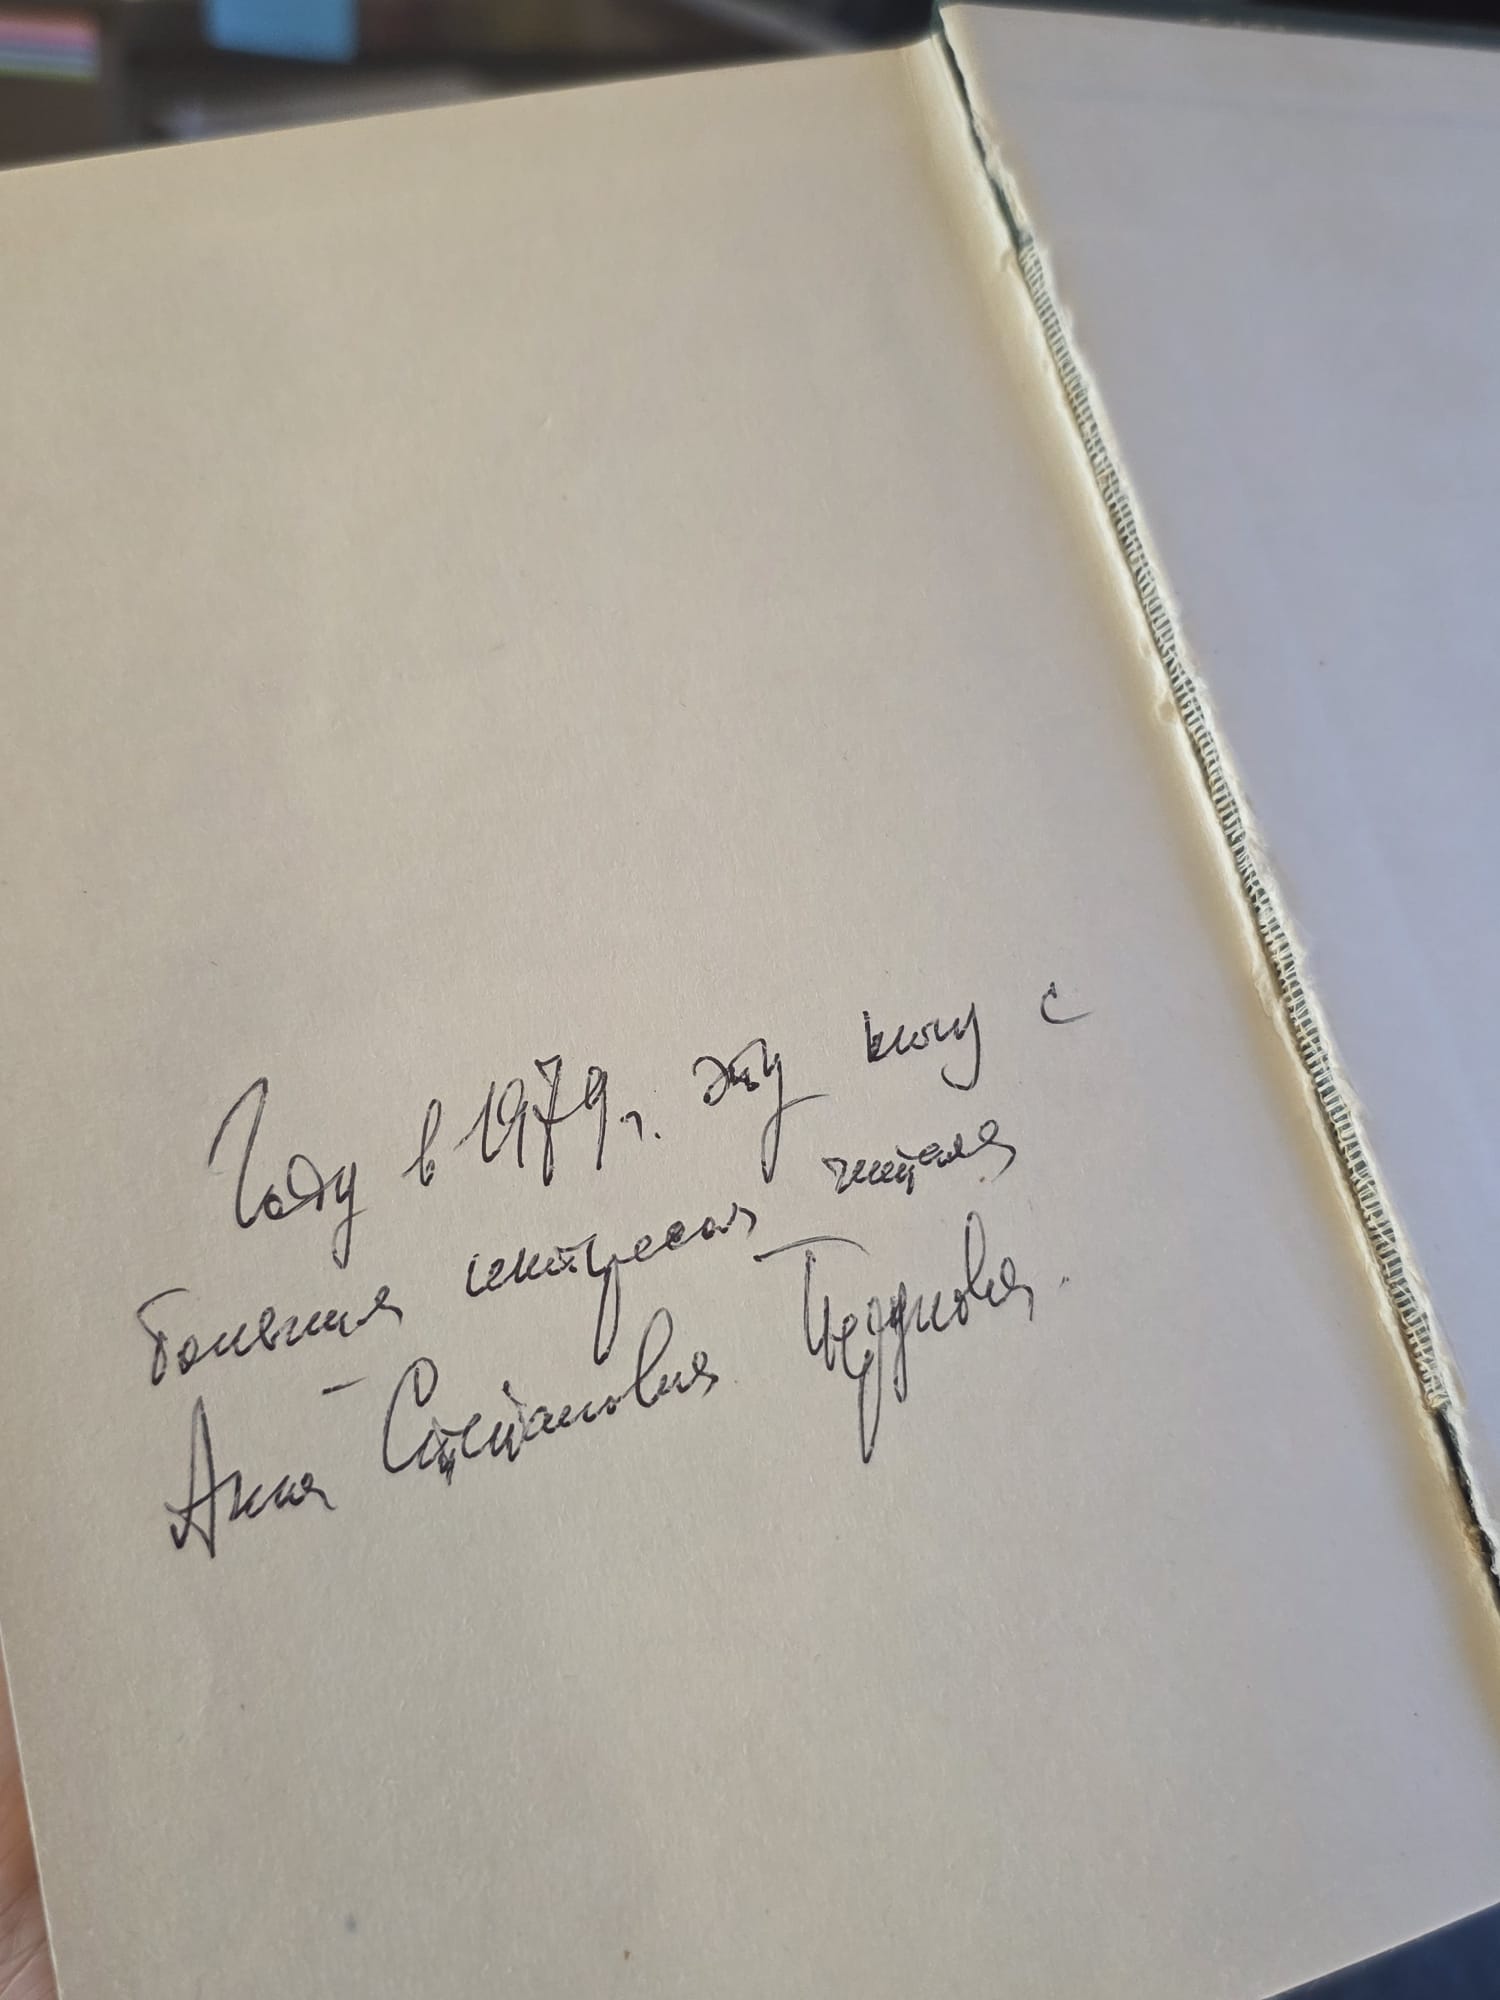 Году в 1979 г. эту книгу с
большим интересом читала
Анна Степановна Трузднова.